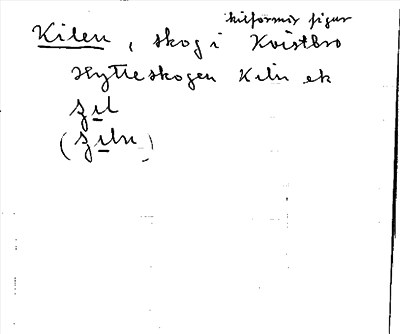 kilformig figur
Kilen, skog i Kvistbro
Hytteskogen Kiln ek